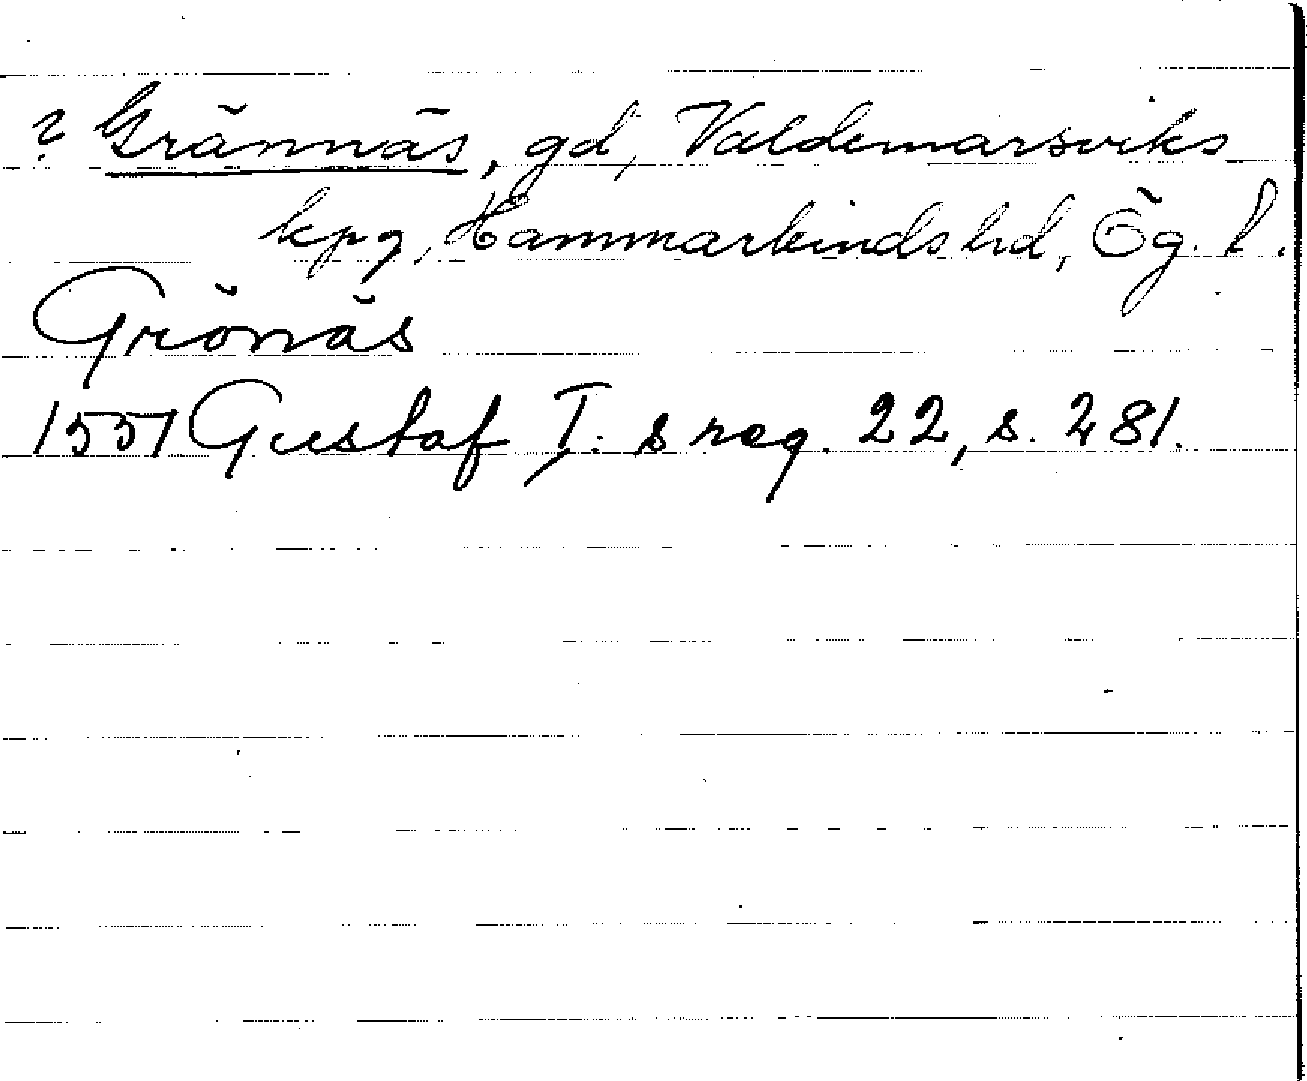 ? Grännäs, gd, Valdemarsviks
kpg, Hammarkinds hd, Ög. l.
Grönäs
1551 Gustaf I:s reg. 22, s. 281.